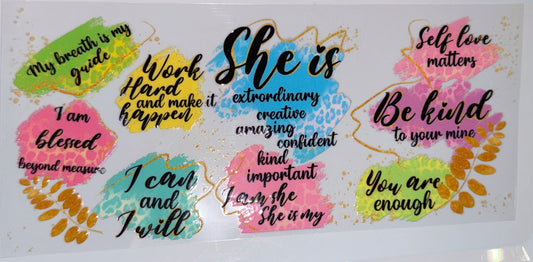 My breath is my
guide
Work
Hard
and make it
happen
She is
extrordinary
creative
amazing
confident
kind
important
I am she
She is my
Self love
matters
I am
blessed
beyond measure
Be kind
to your mine
I can
and
I will
You are
enough